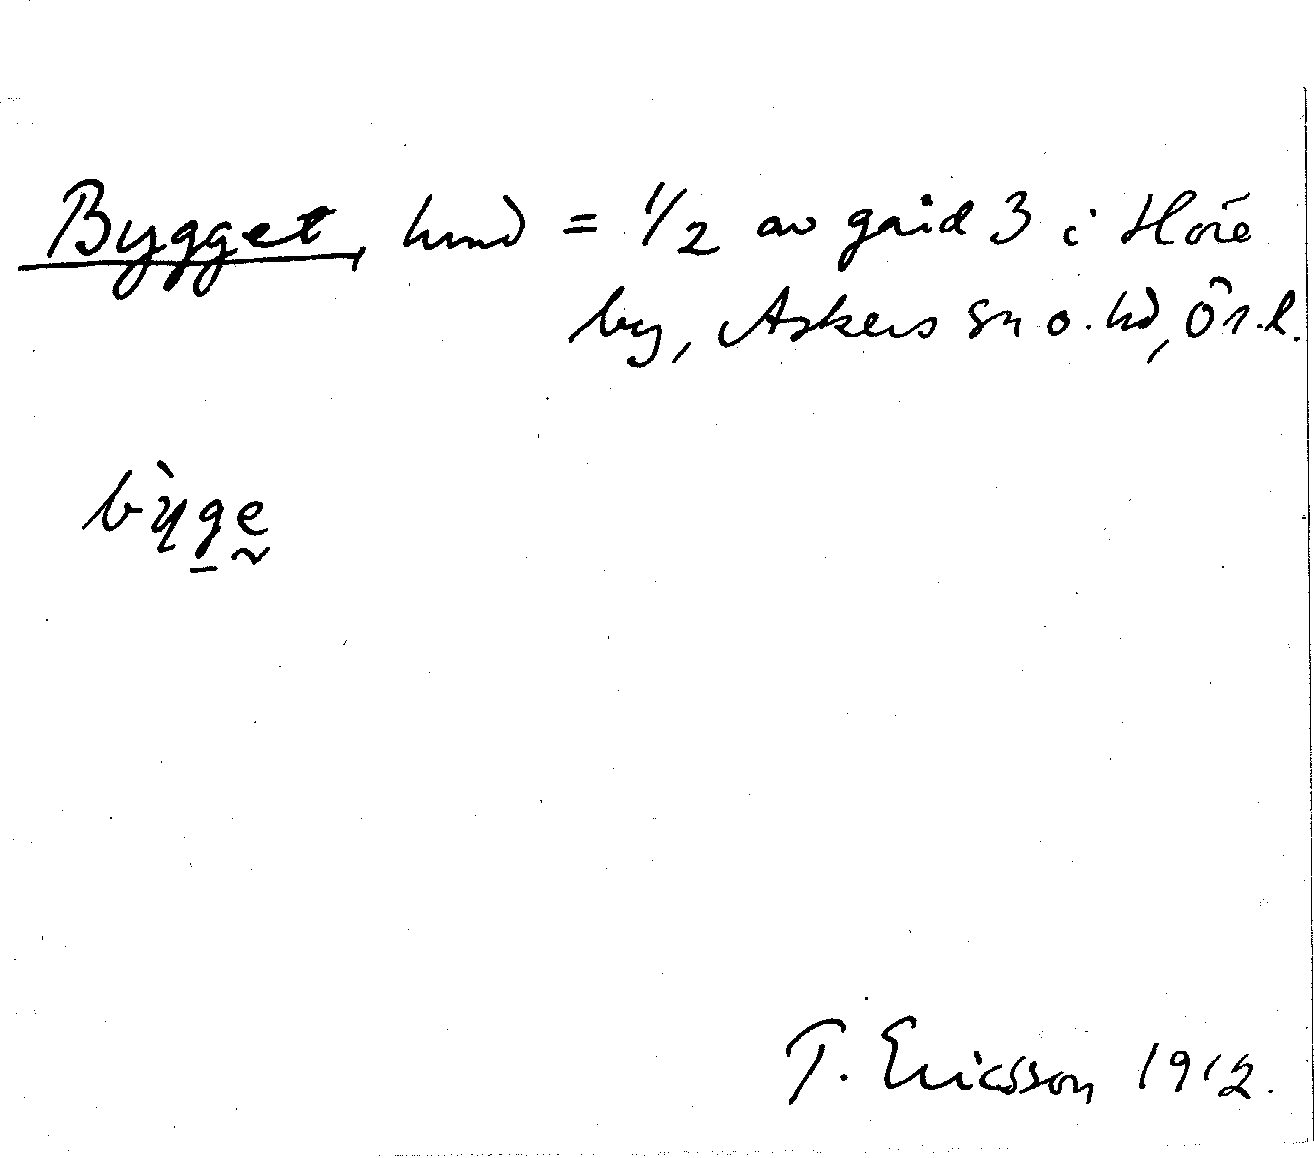 Bygget, hmd = 1/2 av gård 3 i Höre
by, Askers sn o. hd, Ör. l.
bỳge
T. Ericsson 1912.